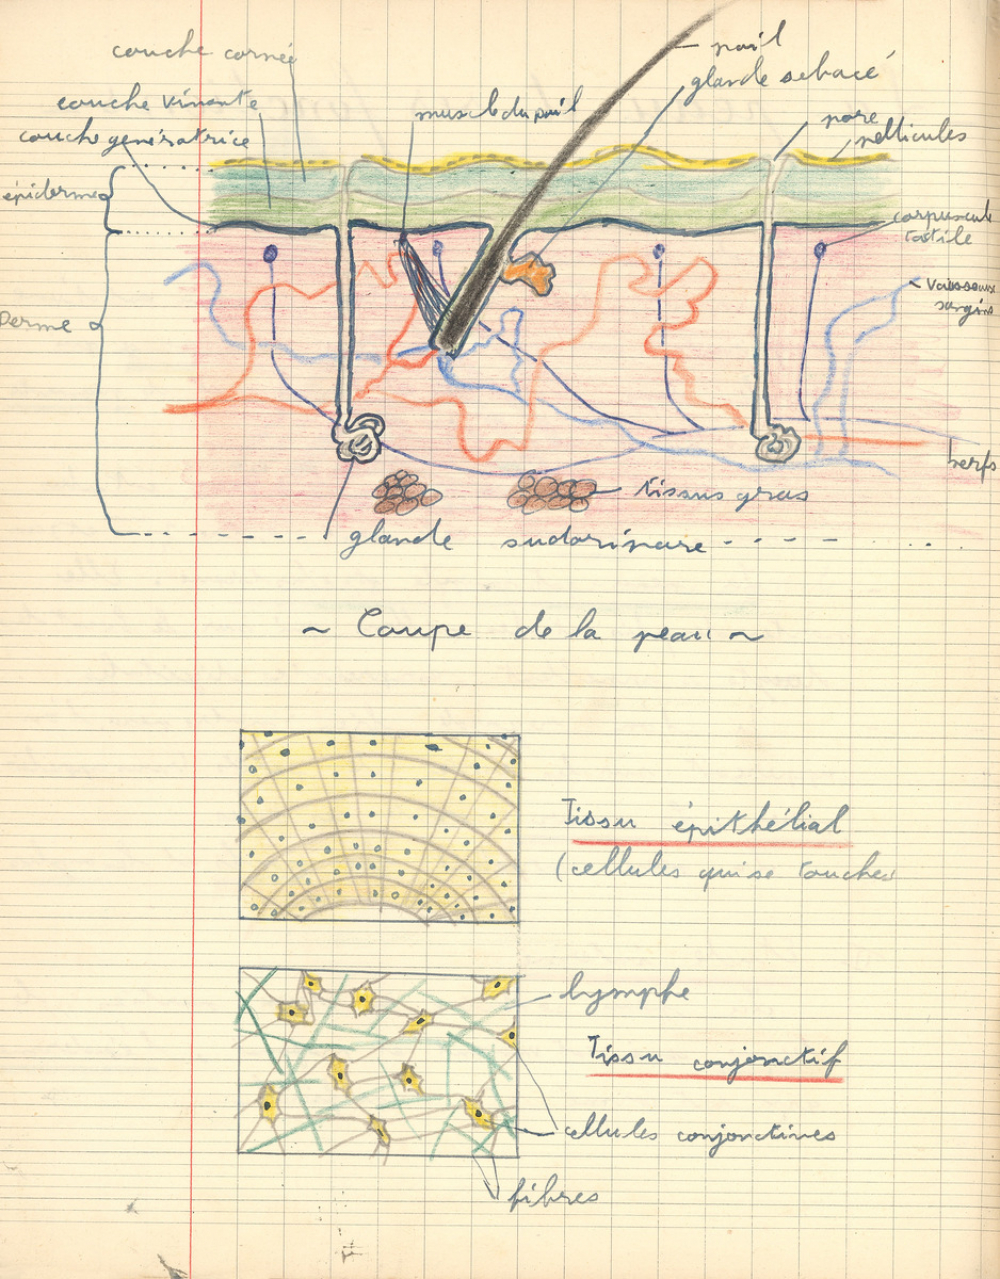 couche cornée
poil
glande sebacé
couche vivante
muscle du poil
pore
couche génératrice
pellicules
épiderme
corpuscule
tactile
vaisseaux
sangins
Derme
nerfs
tissus gras
glande sudoripare
~ Coupe de la peau ~
Tissu épithélial
(cellules qui se touche
lymphe
Tissu conjonctif
cellules conjonctives
fibres